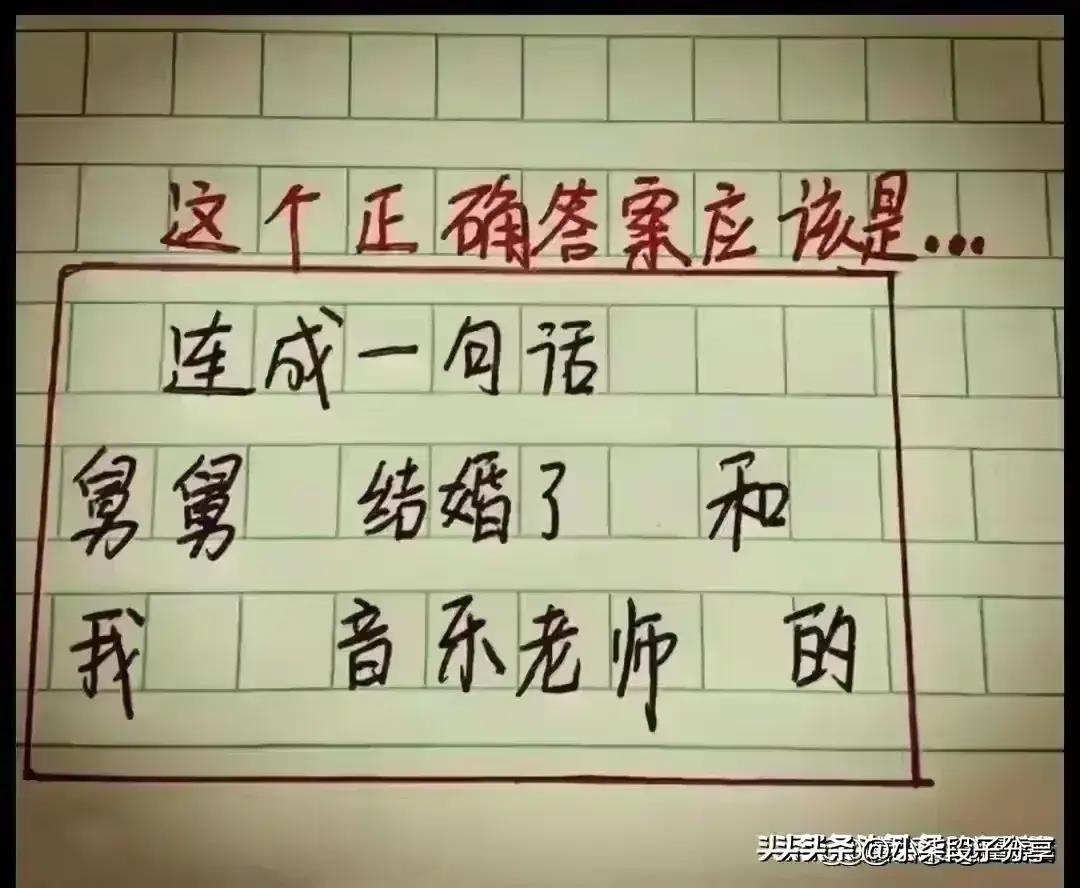 这个正确答案应该是...
连成一句话
舅舅 结婚了 和
我 音乐老师 的
头条 @小柒段子分享